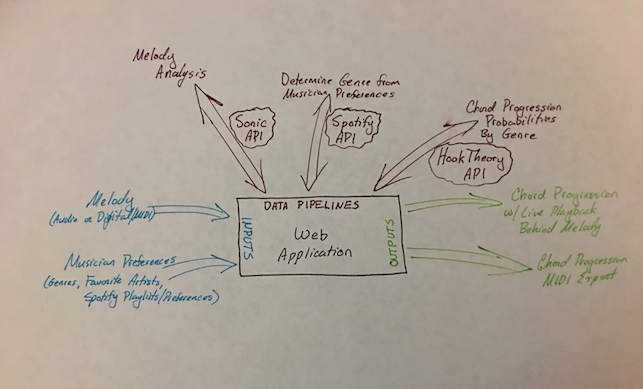 Melody
Analysis
Sonic
API
Determine Genre from
Musician Preferences
Spotify
API
Chord Progression
Probabilities
By Genre
HookTheory
API
Melody
(Audio or Digital/MIDI)
Musician Preferences
(Genres, Favorite Artists,
Spotify Playlists/Preferences)
DATA PIPELINES
INPUTS
Web
Application
OUTPUTS
Chord Progression
w/ Live Playback
Behind Melody
Chord Progression
MIDI Export